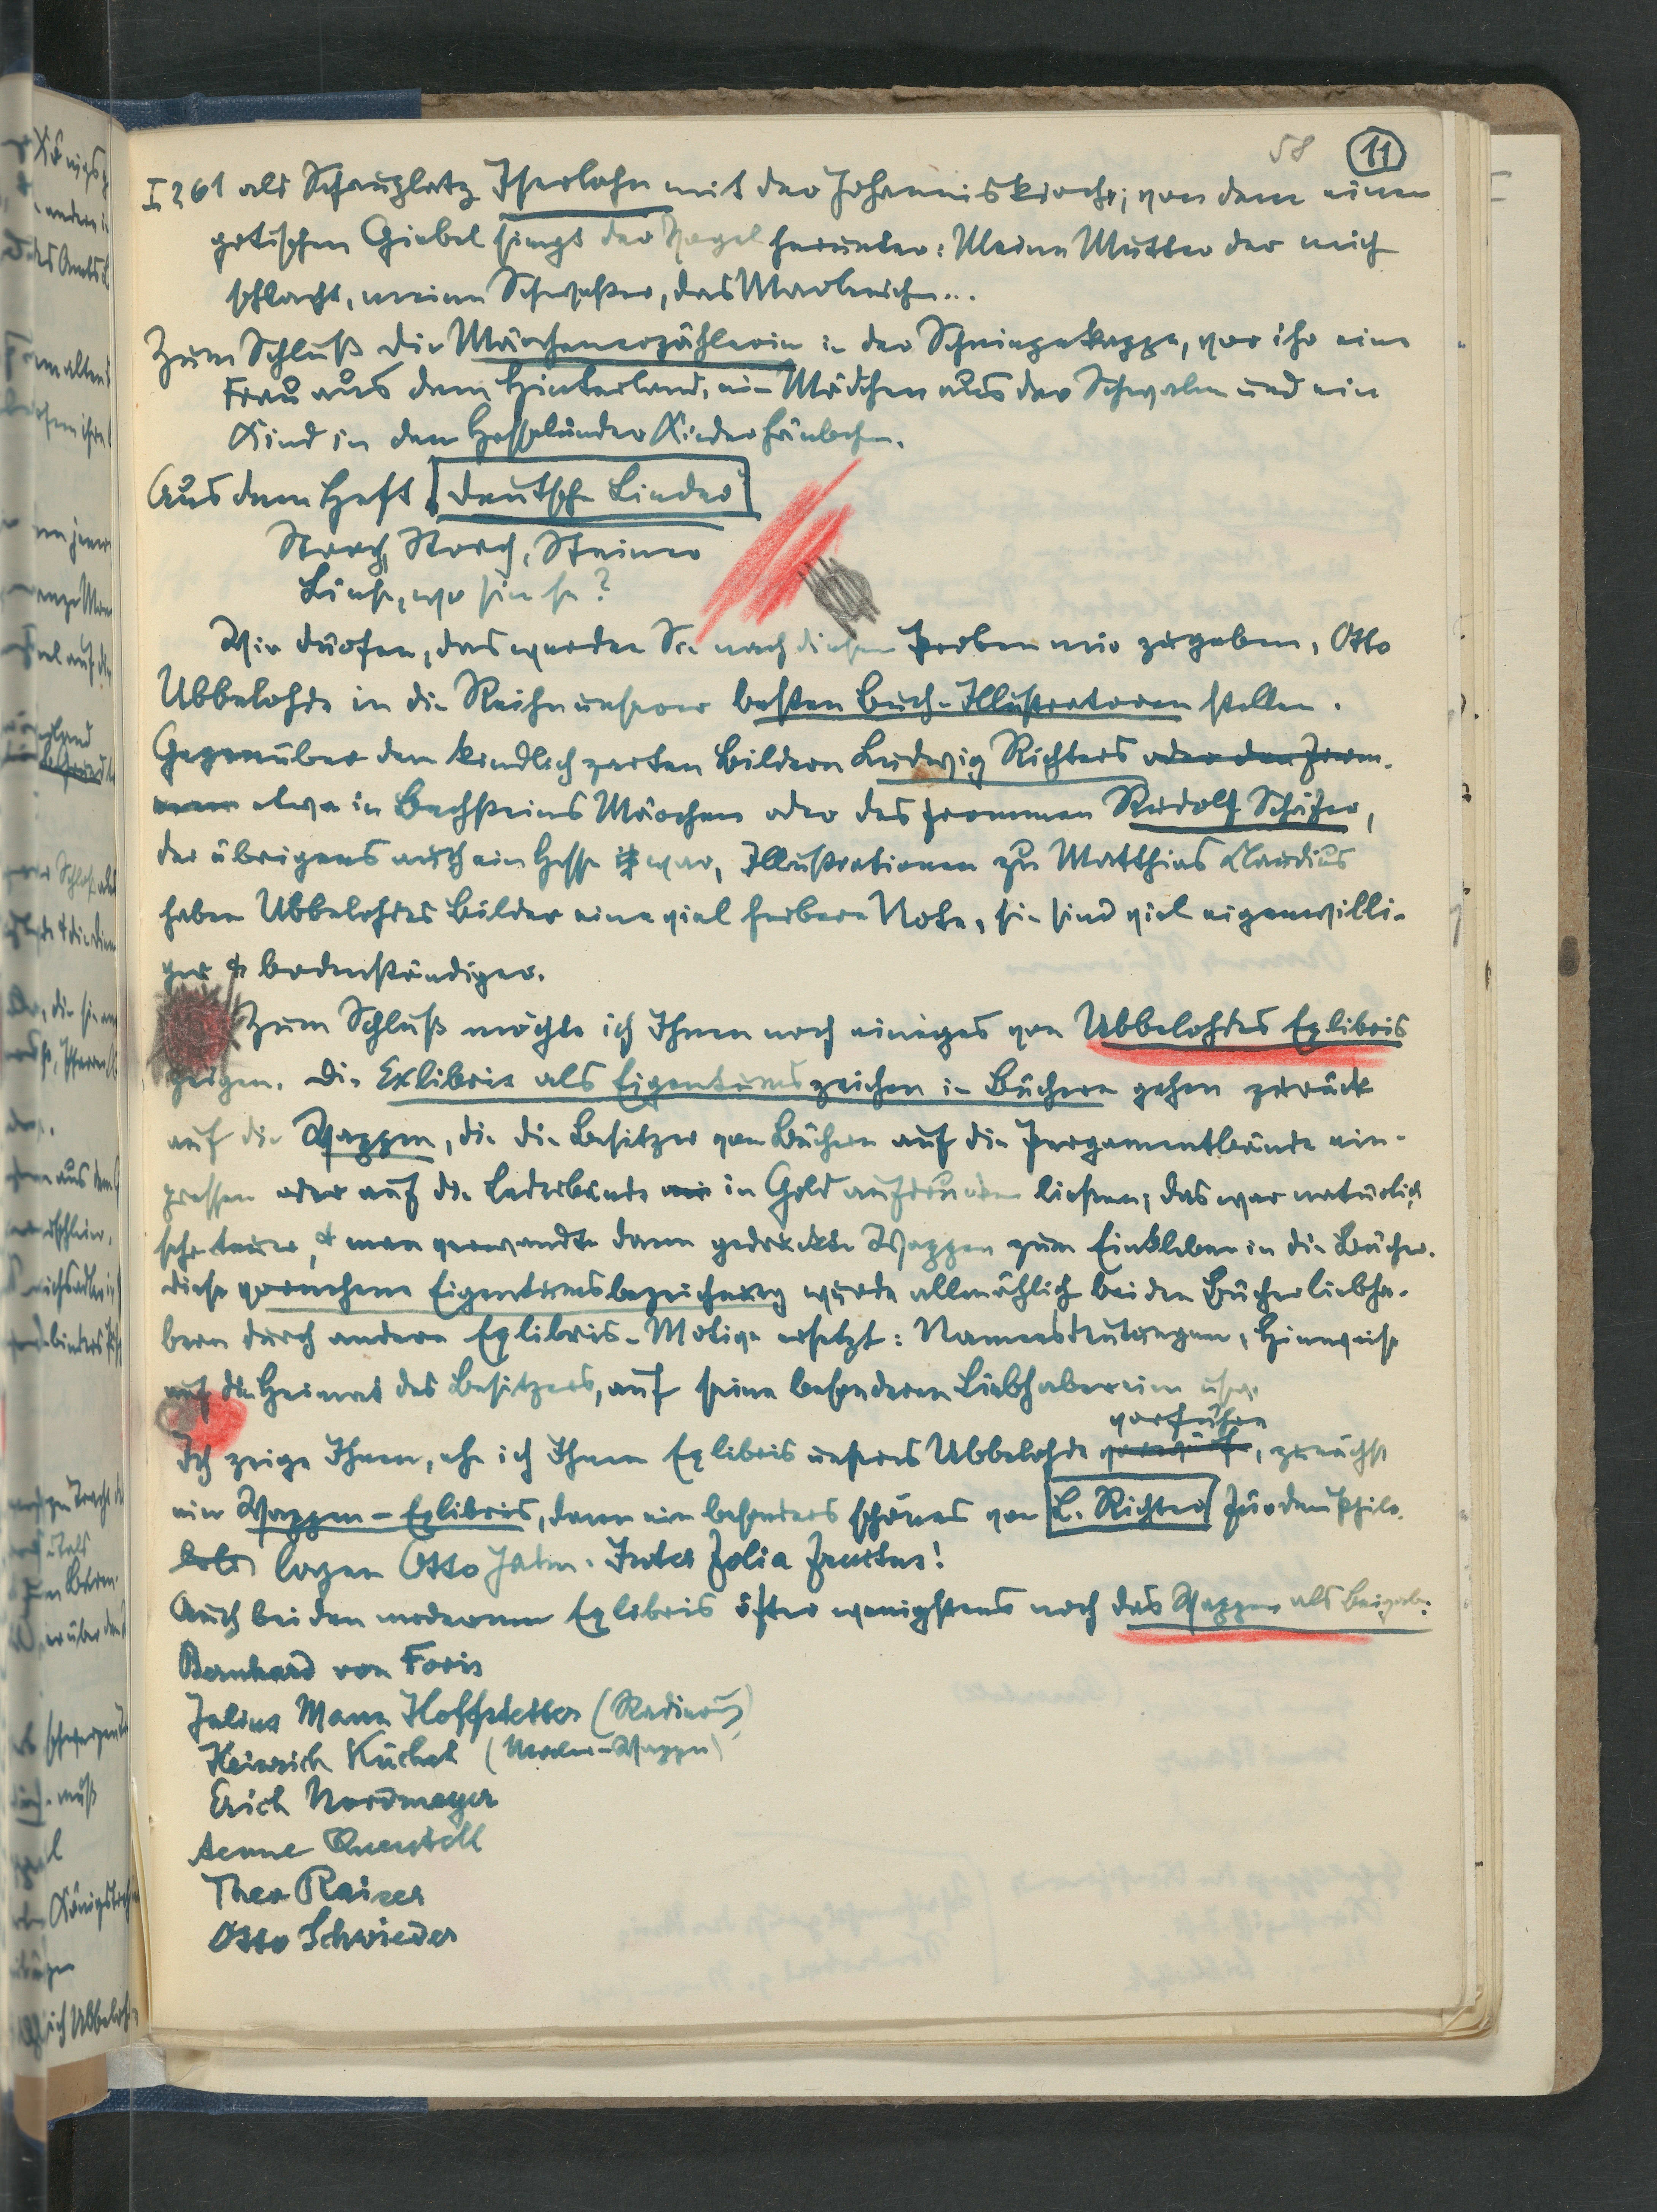 58 11
I 261 als Schauplatz Iserlohn mit der Johanniskirche; von dem einen
gotischen Giebel singt der Vogel herunter: Meine Mutter der mich
schlacht, meine Schwester, das Marlenichen...
Zum Schluß die Märchenerzählerin in der Schneppekappe, vor ihr eine
Frau aus dem Hinterland, ein Mädchen aus der Schwalm und ein
Kind in dem Hessländer Kinderhäubchen.
Aus dem Heft Deutsche Lieder
Storch, Storch, Steiner
Liese, wo sin se?
Wir dürfen, das werden Sie nach diesen Proben mir zugeben, Otto
Ubbelohde in die Reihe unserer besten Buch-Illustratoren stellen.
Gegenüber den kindlich zarten Bildern Ludwig Richters oder den from-
men etwa in Bechsteins Märchen oder des frommen Rudolf Schäfer,
der übrigens auch ein Hesse ist war, Illustrationen zu Matthias Claudius
haben Ubbelohdes Bilder eine viel herbere Note, sie sind viel eigenwilli-
ger & bodenständiger.
Zum Schluß möchte ich Ihnen noch einiges von Ubbelohdes Exlibris
zeigen. Die Exlibris als Eigentumszeichen in Büchern gehen zurück
auf die Wappen, die die Besitzer von Büchern auf die Pergamentbände ein-
pressen oder auf die Lederbände in Gold aufdrucken ließen; das war natürlich
sehr teuer, & man verwandte dann gedruckte Wappen zum Einkleben in die Bücher.
Diese vornehme Eigentumsbezeichnung wurde allmählich bei den Bücherliebha-
bern durch andere Exlibris-Motive ersetzt: Namensdeutungen, Hinweise
auf die Heimat des Besitzers, auf seine besonderen Liebhabereien usw.
vorführe
Ich zeige Ihnen, ehe ich Ihnen Exlibris unseres Ubbelohde, zunächst
ein Wappen-Exlibris, dann ein besonders schönes von L. Richter für den Philo-
logen Otto Jahn. Inter folia fructus!
Auch bei den modernen Exlibris öfter wenigstens noch das Wappen als Beigabe:
Bernhard von Foris
Julius Mann Hoffstetter (Radierung)
Heinrich Küchel (Maler-Wappen)
Erich Nordmeyer
Aenne Quentell
Theo Raiser
Otto Schwieder